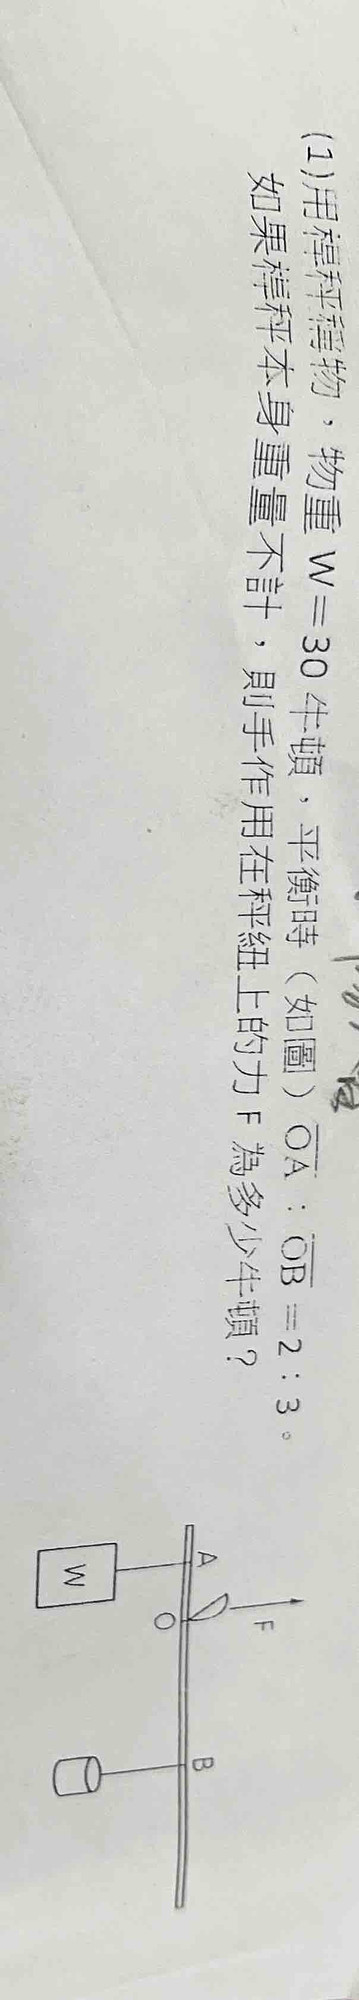 (1)用桿秤稱物，物重 W＝30 牛頓，平衡時（如圖）OA：OB＝2：3。
如果桿秤本身重量不計，則手作用在秤紐上的力 F 為多少牛頓？
F
A
B
O
W